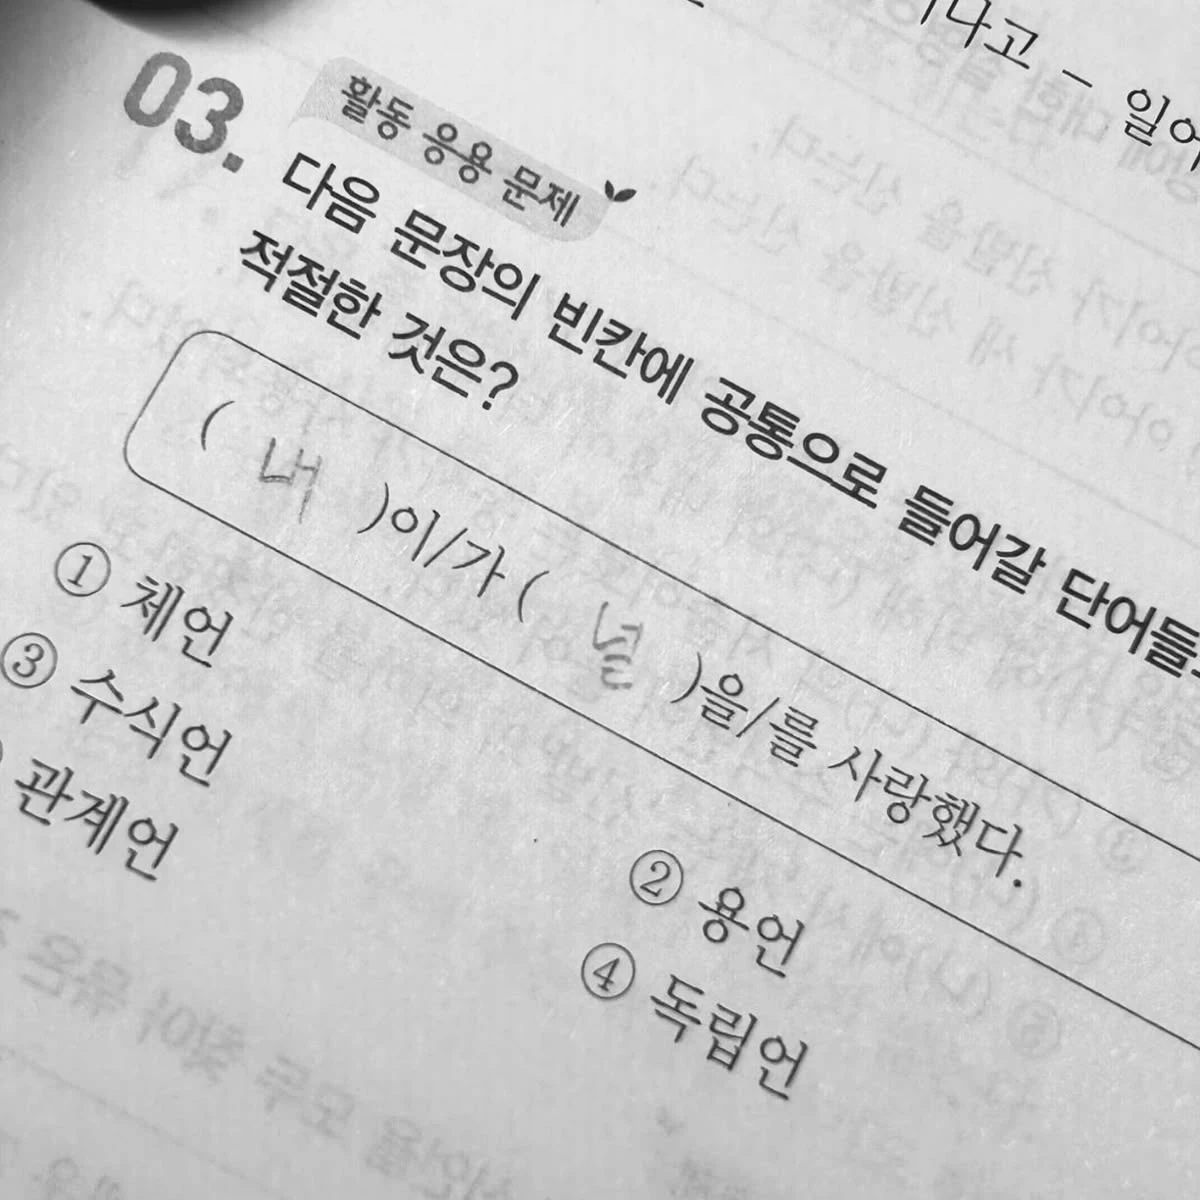 나고 - 일어
03.
활동 응용 문제
다음 문장의 빈칸에 공통으로 들어갈 단어들
적절한 것은?
( 내 )이/가 ( 널 )을/를 사랑했다.
① 체언
② 용언
③ 수식언
④ 독립언
관계언